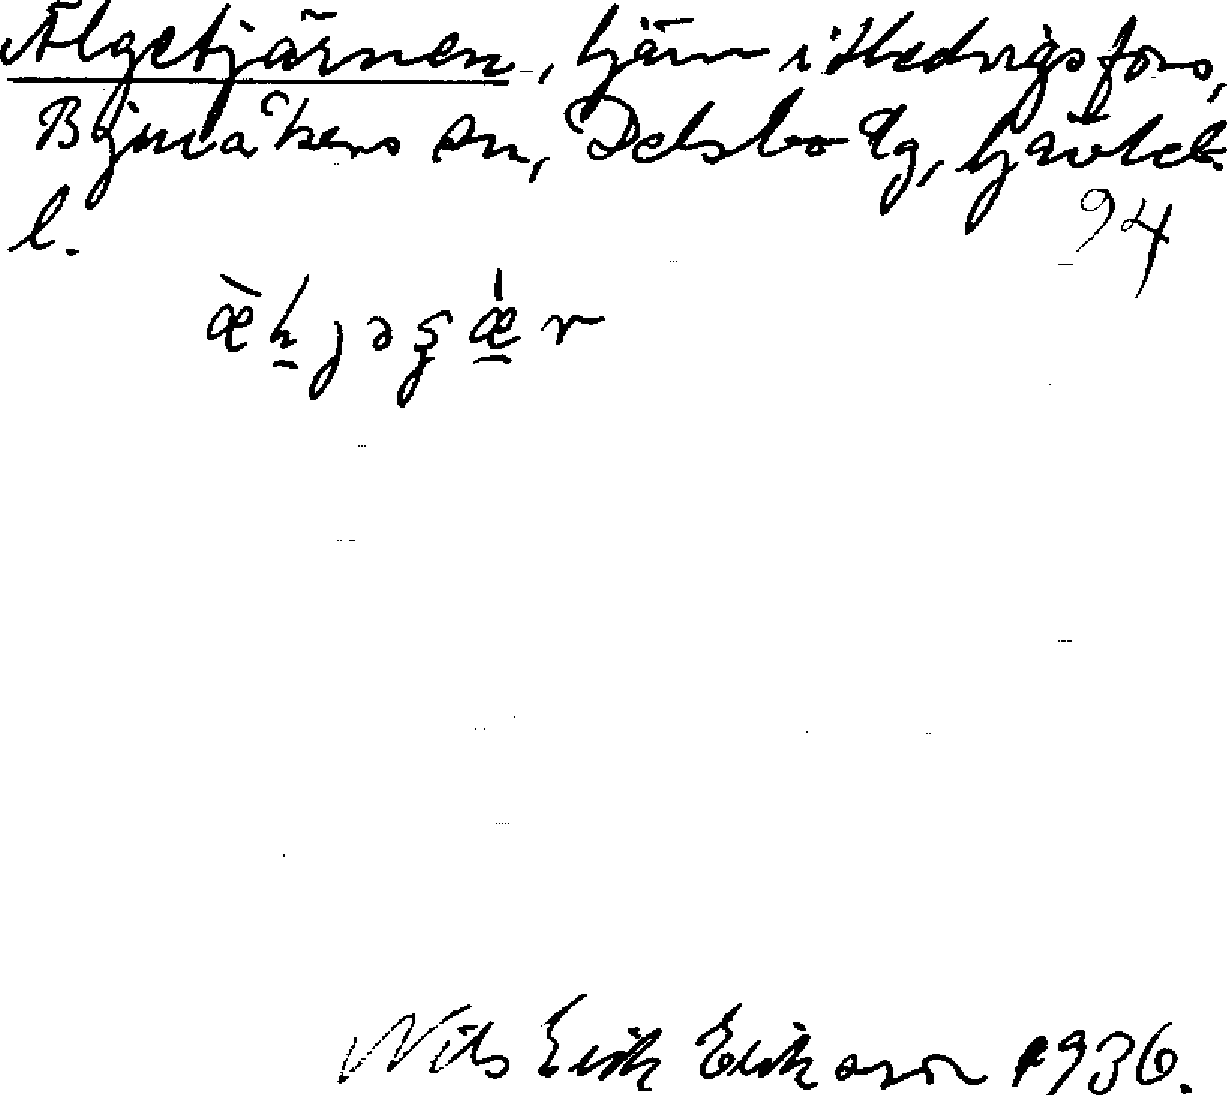 Älgetjärnen, tjärn i Hedvigsfors,
Bjuråkers sn, Delsbo tg, Gävleb.
l.
94
Nils Erik Erikson 1936.